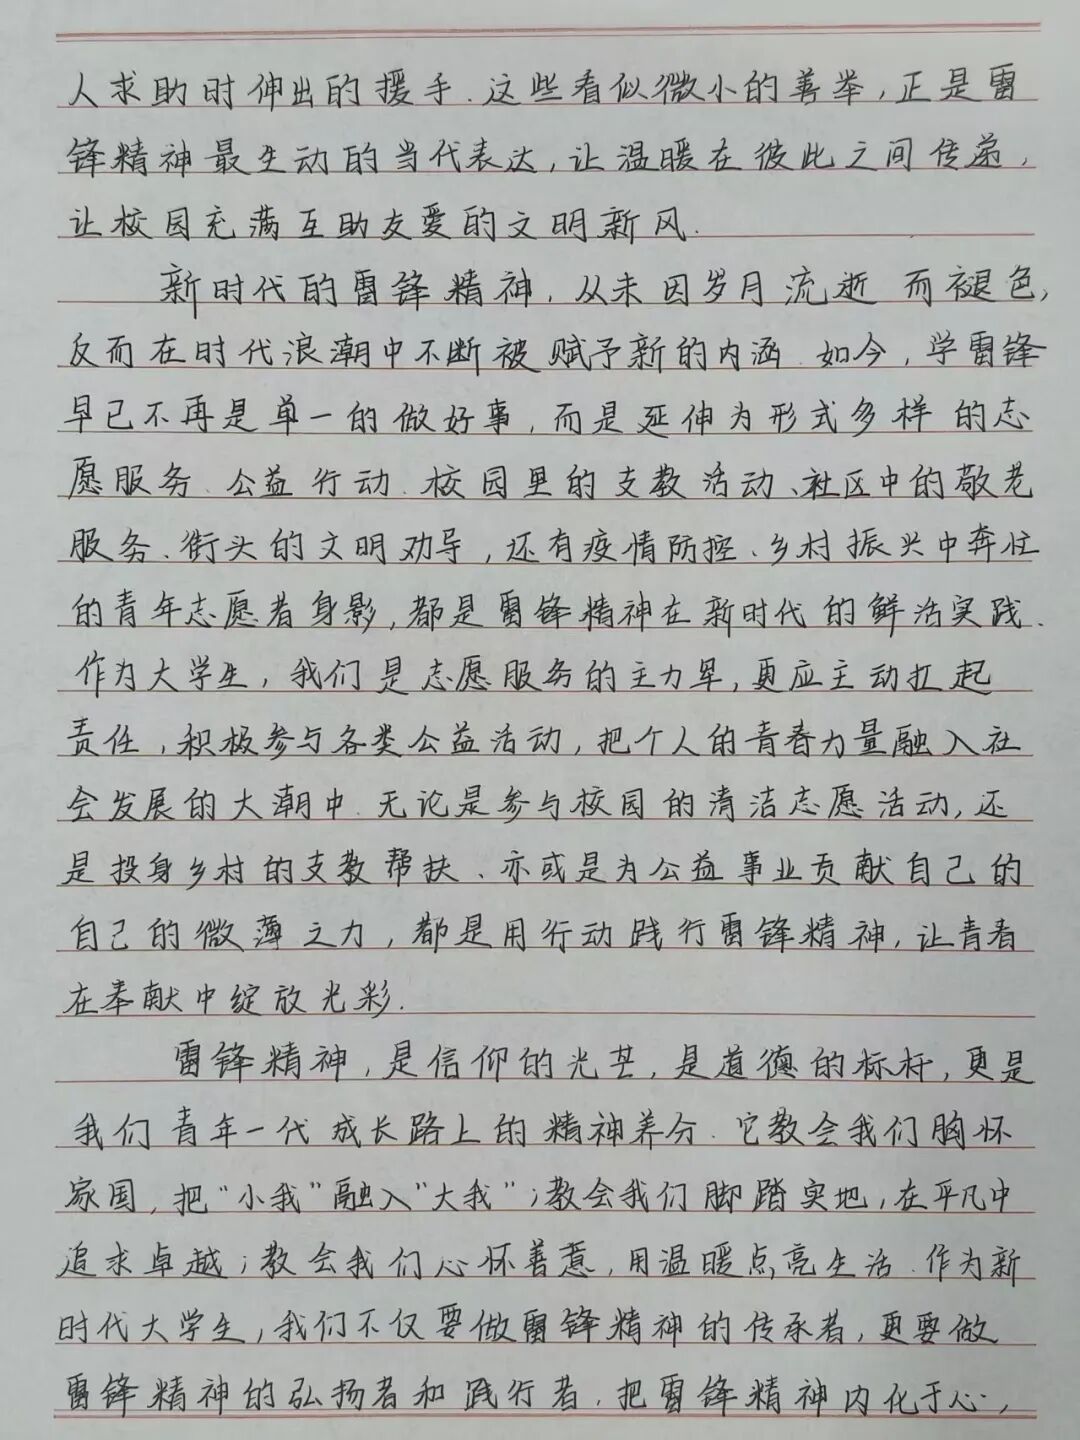 人求助时伸出的援手.这些看似微小的善举,正是雷
锋精神最生动的当代表达,让温暖在彼此之间传递,
让校园充满互助友爱的文明新风.
新时代的雷锋精神,从未因岁月流逝而褪色,
反而在时代浪潮中不断被赋予新的内涵.如今,学雷锋
早已不再是单一的做好事,而是延伸为形式多样的志
愿服务、公益行动.校园里的支教活动、社区中的敬老
服务、街头的文明劝导,还有疫情防控、乡村振兴中奔忙
的青年志愿者身影,都是雷锋精神在新时代的鲜活实践.
作为大学生,我们是志愿服务的主力军,更应主动扛起
责任,积极参与各类公益活动,把个人的青春力量融入社
会发展的大潮中.无论是参与校园的清洁志愿活动,还
是投身乡村的支教帮扶、亦或是为公益事业贡献自己的
自己的微薄之力,都是用行动践行雷锋精神,让青春
在奉献中绽放光彩.
雷锋精神,是信仰的光芒,是道德的标杆,更是
我们青年一代成长路上的精神养分.它教会我们胸怀
家国,把“小我”融入“大我”;教会我们脚踏实地,在平凡中
追求卓越;教会我们心怀善意,用温暖点亮生活.作为新
时代大学生,我们不仅要做雷锋精神的传承者,更要做
雷锋精神的弘扬者和践行者.把雷锋精神内化于心,